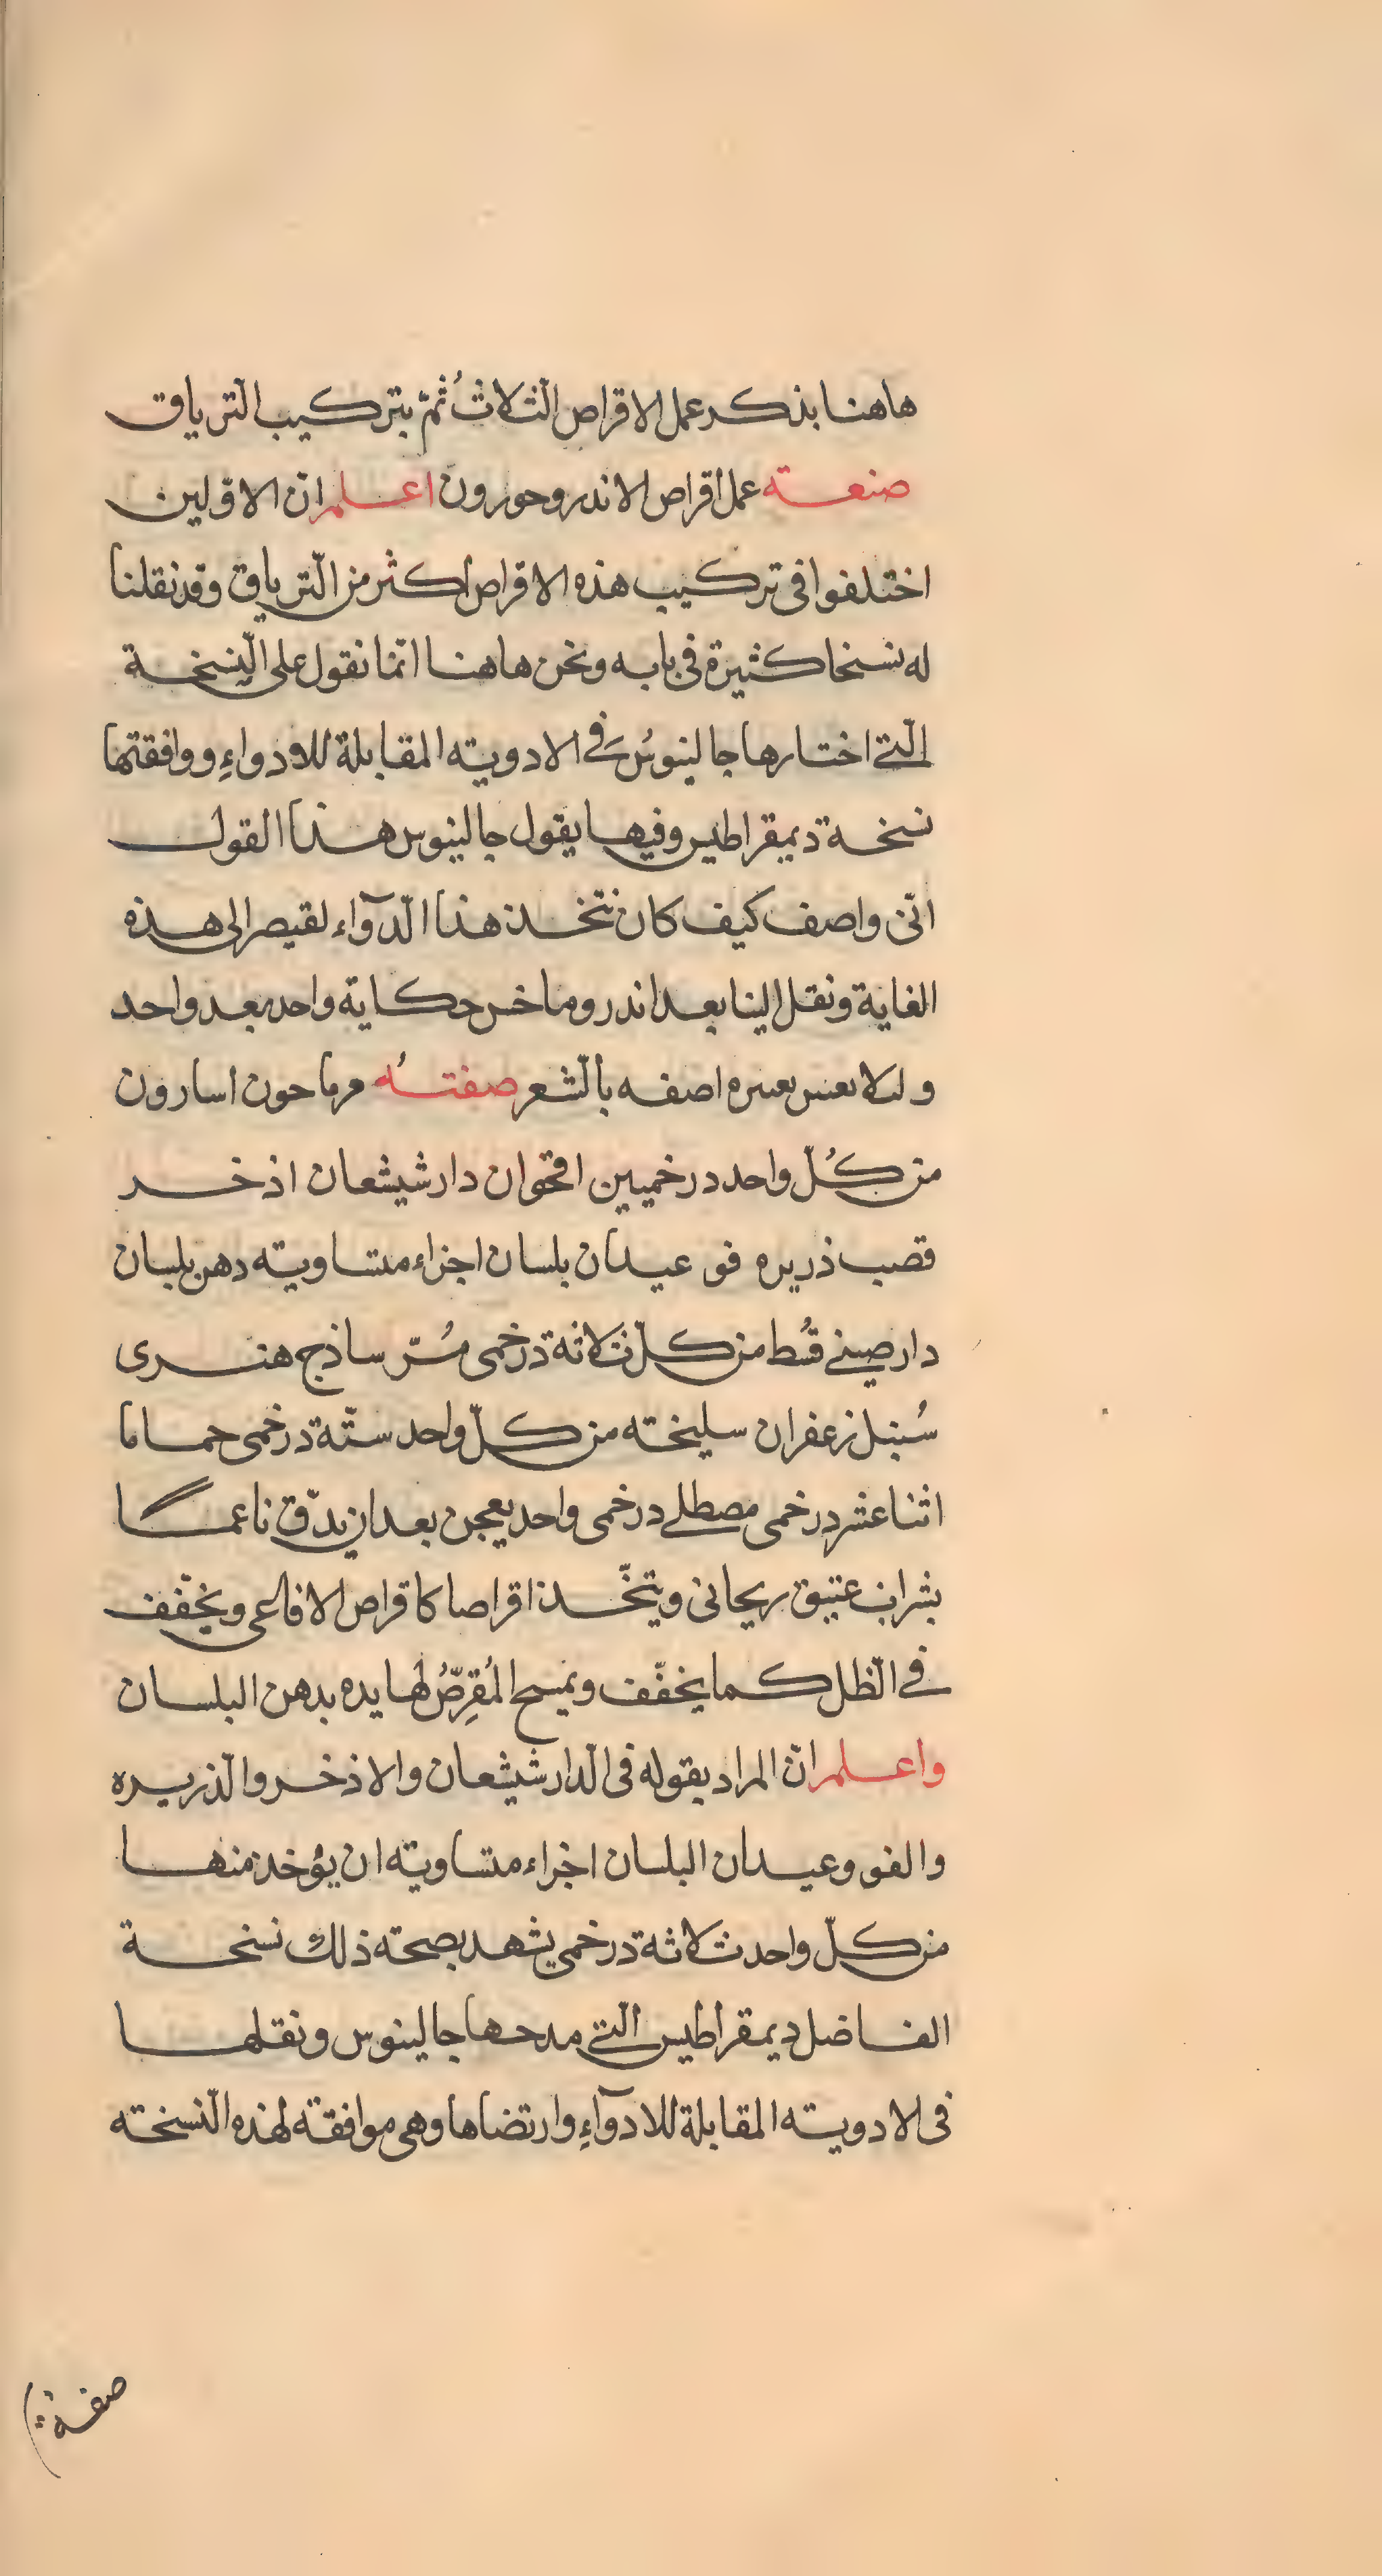 هاهنا بذكر عمل الاقراص الثلاث ثُمّ بتركيب الترياق
صنعته عمل اقراص الاندروحورون اعلم انّ الاوّلين
اختلفوا فى تركيب هذه الاقراص اكثر من الترياق وقد نقلنا
له نسخا كثيرة فى بابه ونحن هاهنا انّما نقول على النسخة
الّتى اختارها جالينوسُ فى الادويته المقابلة للاودواءِ ووافقتها
نسخة ديمقراطيس وفيها يقول جالينوس هذا القول
انّى واصف كيف كان نتّخذ هذا الدّوآء لقيصر الى هذه
الغاية ونقل الينا بعد اندروماخس حكاية واحد بعد واحد
اصفه بالشّعر صفتهُ مرماحون اسارون
من كُلّ واحد درخميين اقحوان دارشيشعان اذخر
قصب ذريره فو عيدان بلسان اجزاء متساويته دهن بلسان
دارصينى قُسط من كلّ ثلاثة درخمى مُرّ ساذج هندى
سُنبل زعفران سليخته من كلّ واحد ستّة درخمى حماما
اثنا عشر درخمى مصطكى درخمى واحد يعجن بعد ان يدّق ناعما
بشراب عتيق ريحانى ويتّخذ اقراصا كاقراص الافاعى ويخفّف
فى الظّل كما يخفّف ويمسح المُقرِّصُ لها يده بدهن البلسان
واعلم انّ المراد بقوله فى الدّارشيشعان والاذخر والذّريره
والفو وعيدان البلسان اجزاء متساويته ان يؤخذ منها
من كلّ واحد ثلاثة درخمى يشهد بصحته ذلك نسخة
الفاضل ديمقراطيس الّتى مدحها جالينوس ونقلها
فى الادويته المقابلة للادوآءِ وارتضاها وهى موافقة لهذه النّسخته
صفة